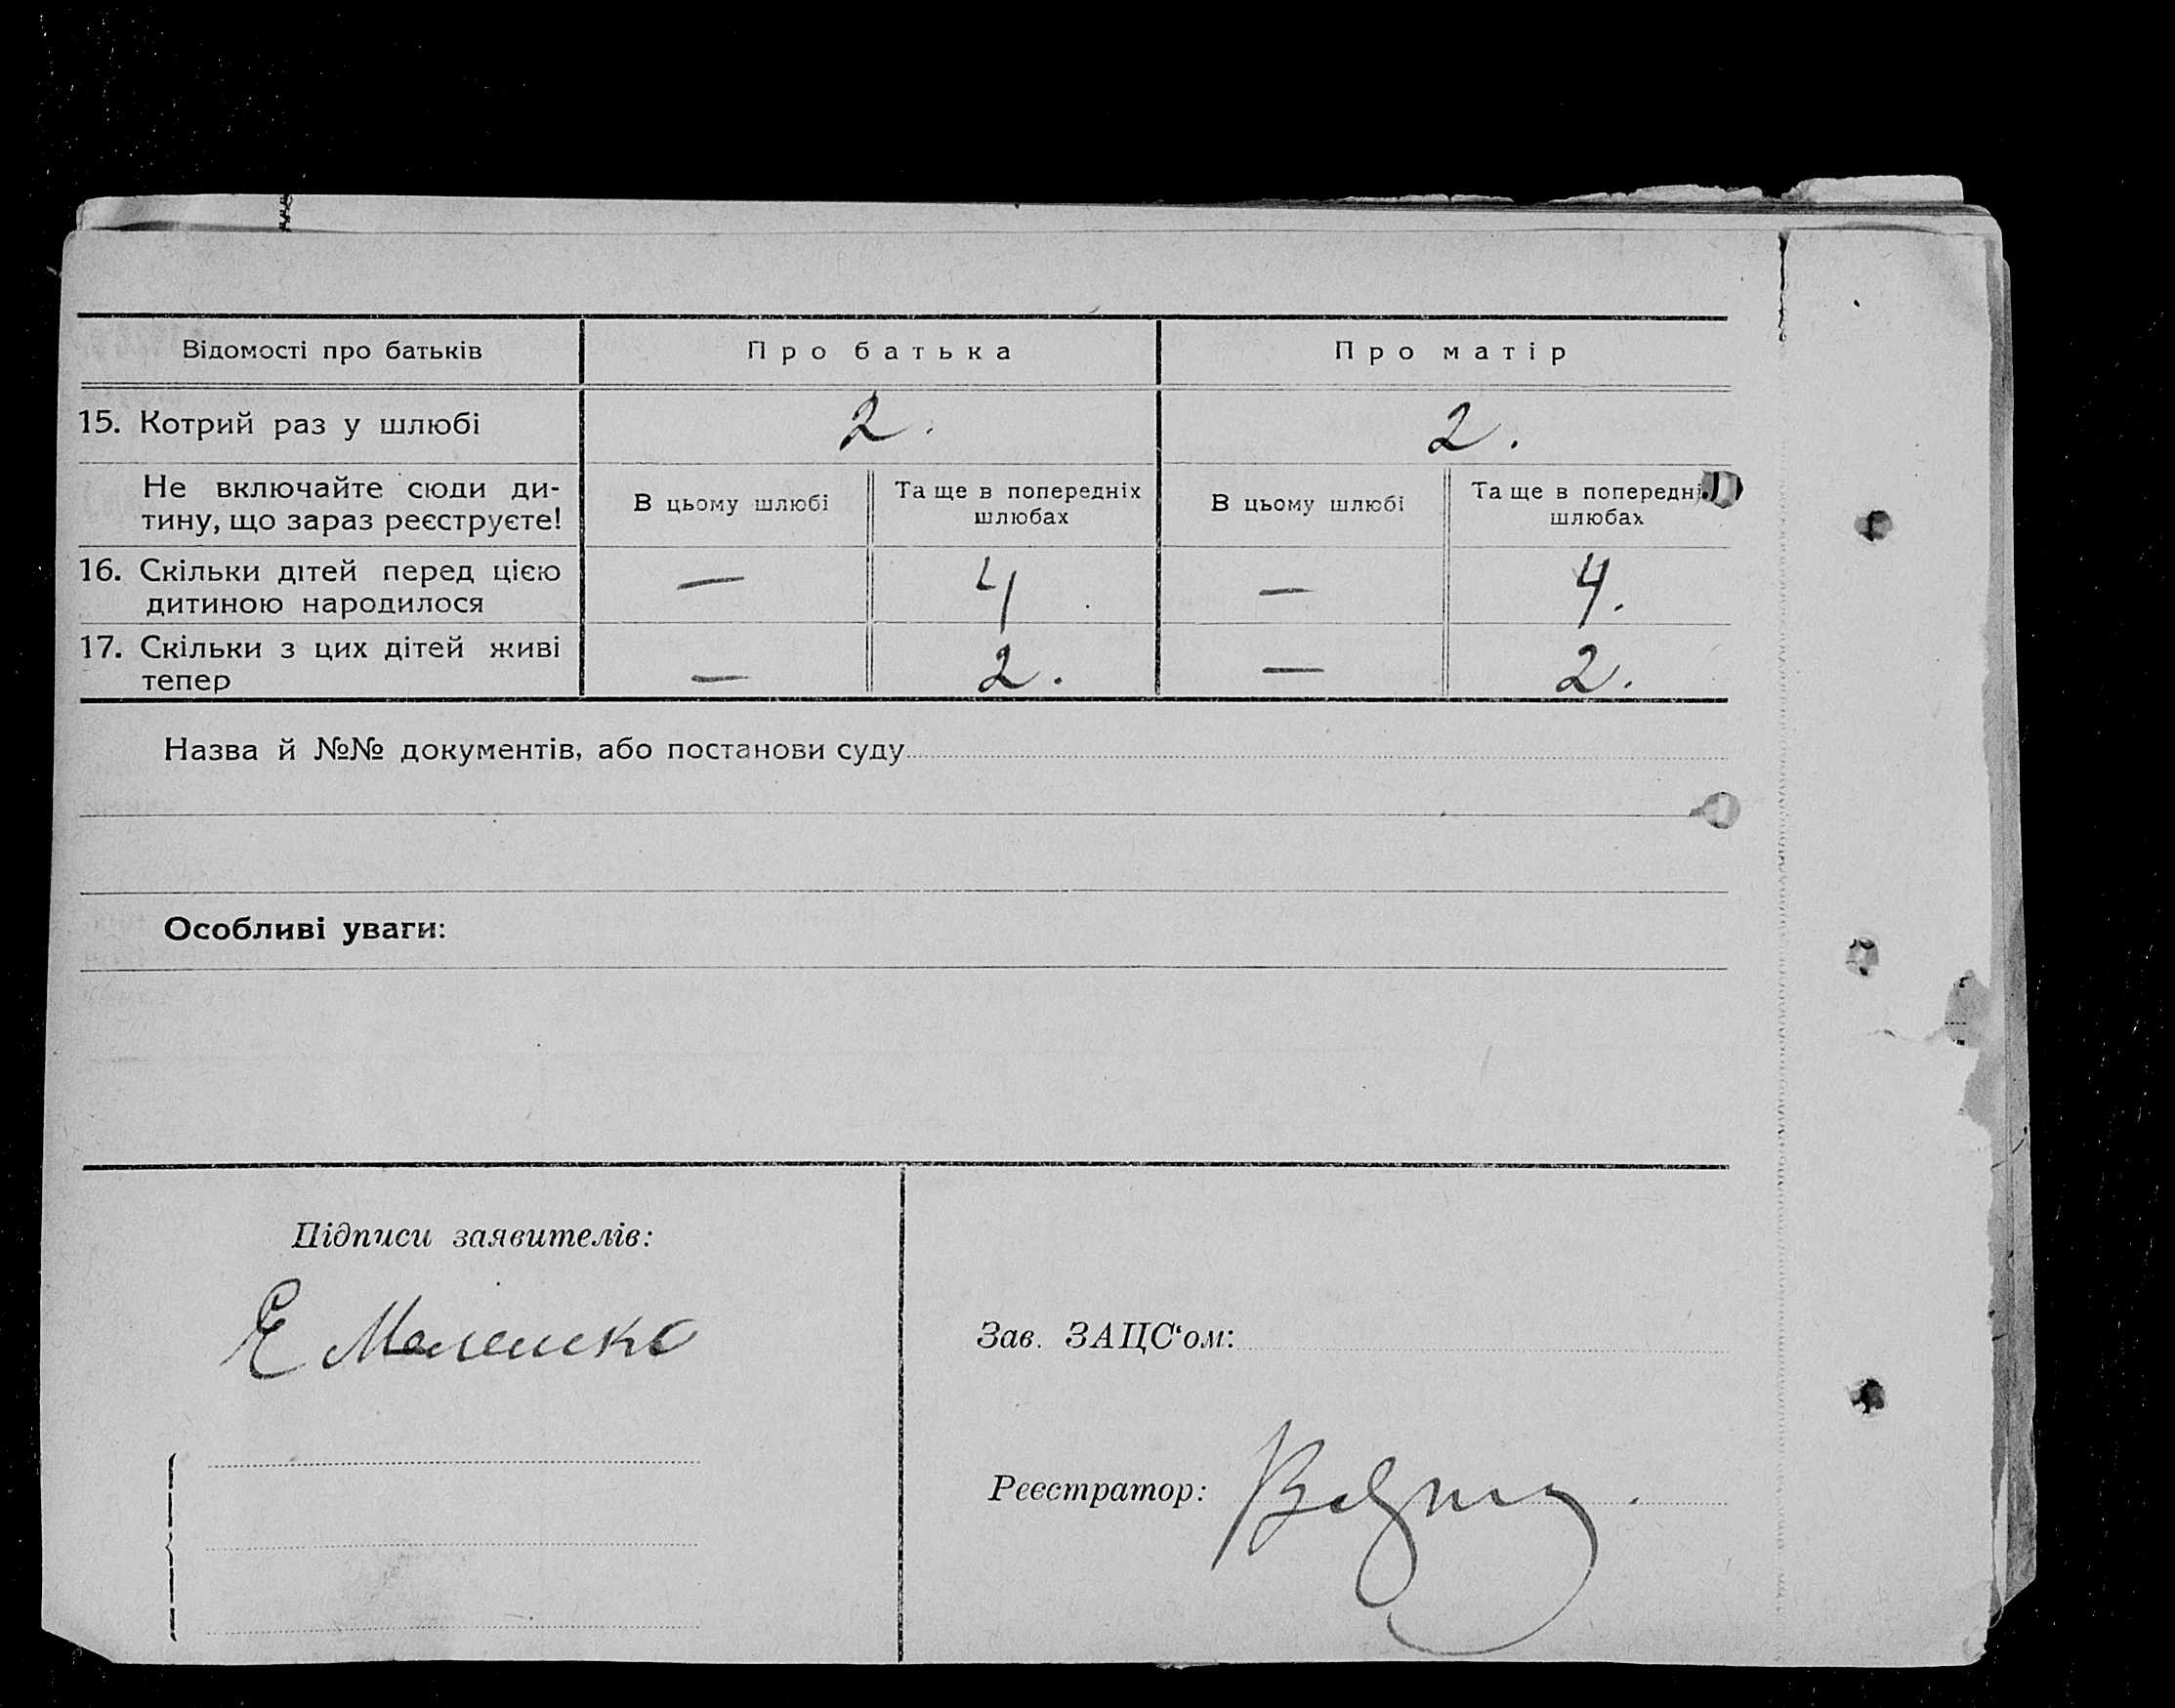 Відомості про батьків
Про батька
Про матір
15. Котрий раз у шлюбі
2.
2.
Не включайте сюди ди-
тину, що зараз реєструєте!
В цьому шлюбі
Та ще в попередніх
шлюбах
В цьому шлюбі
Та ще в попередніх
шлюбах
16. Скільки дітей перед цією
дитиною народилося
—
4
—
4.
17. Скільки з цих дітей живі
тепер
—
2.
—
2.
Назва й №№ документів, або постанови суду
Особливі уваги:
Підписи заявителів:
Е
Зав. ЗАЦС‘ом:
Реєстратор: